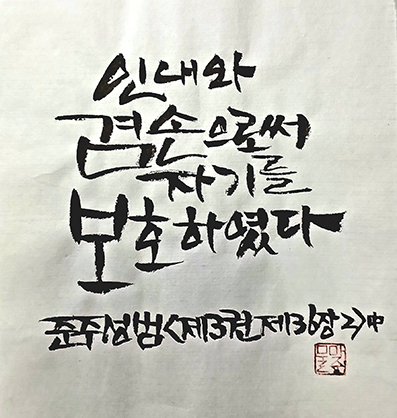 인내와
겸손으로써
자기를
보호하였다
준주성범<제3권 제36장 2>中